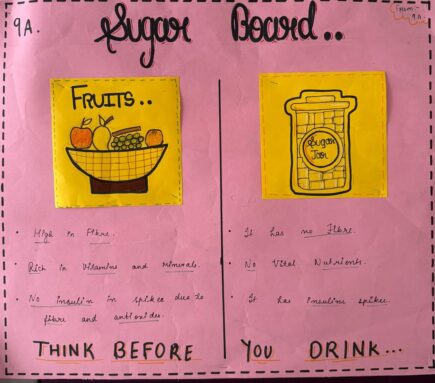 9A.
Sugar Board..
From:-
9A.
FRUITS..
Sugar
Jar
• High in Fibre.
• Rich in Vitamins and Minerals.
• No insulin in spikes due to
fibre and antioxides.
• It has no Fibre.
• No Vital Nutrients.
• It has insuline spikes.
THINK BEFORE YOU DRINK...